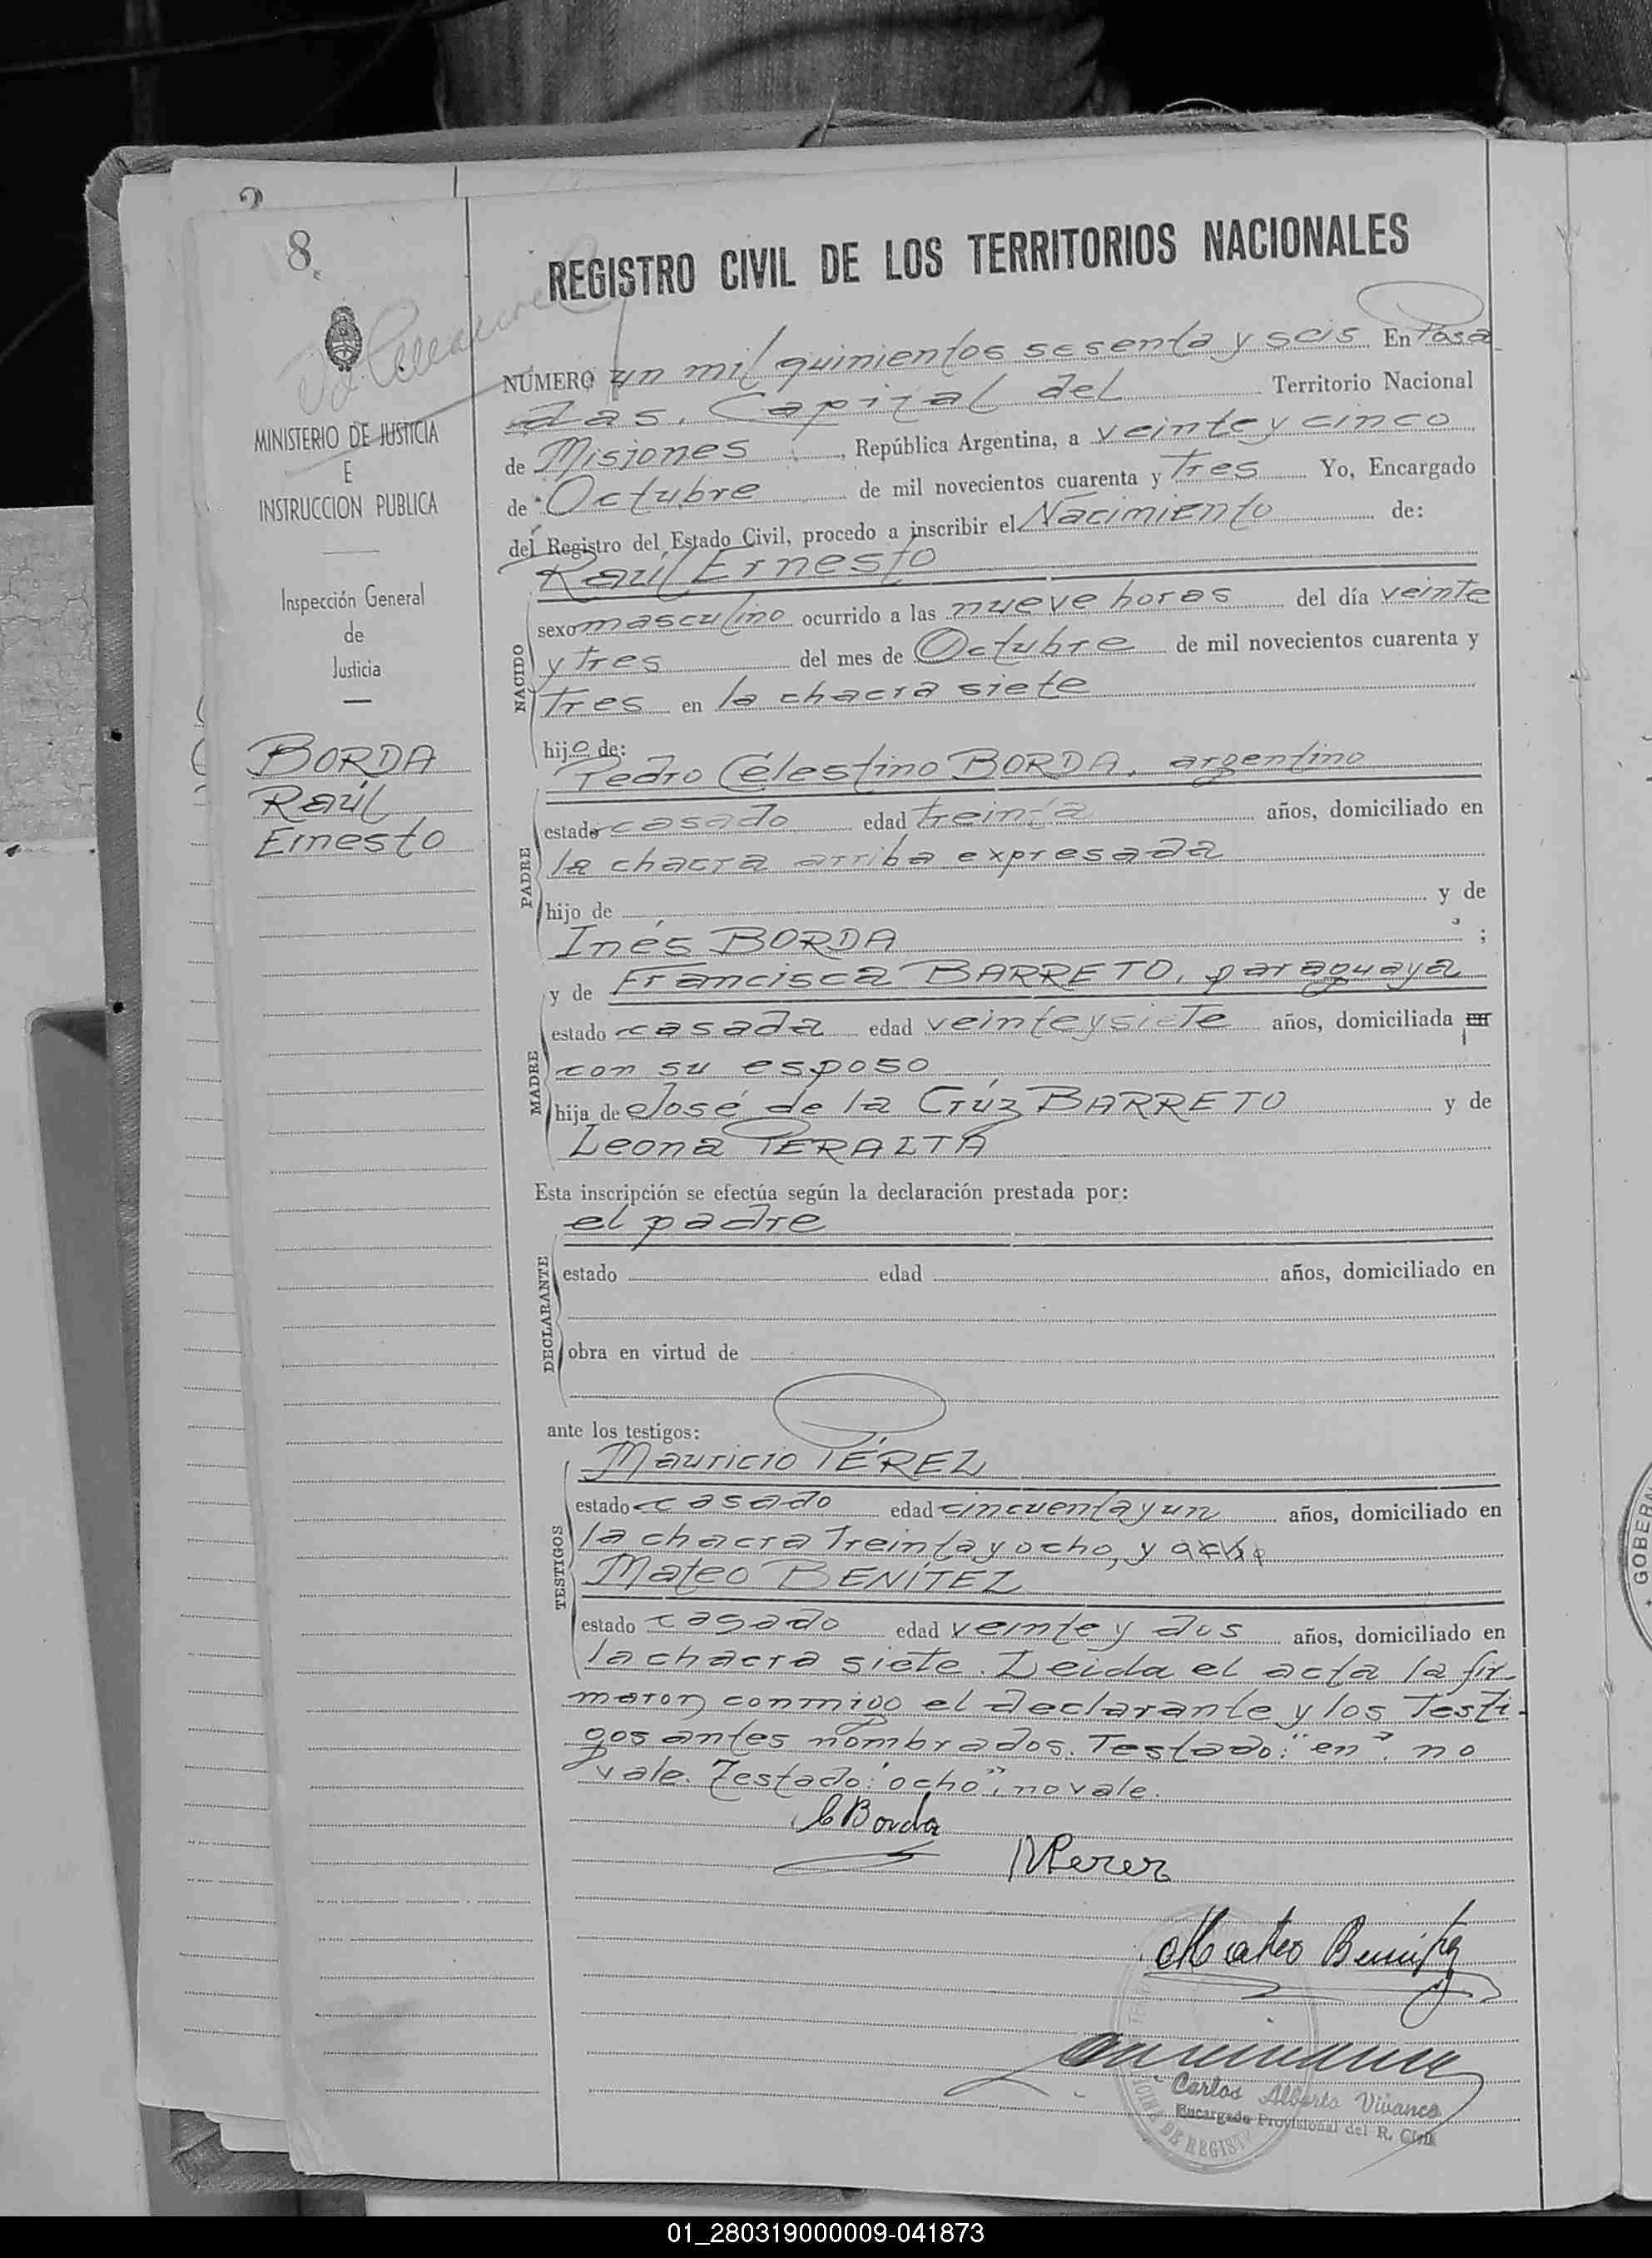 8
REGISTRO CIVIL DE LOS TERRITORIOS NACIONALES
MINISTERIO DE JUSTICIA
E
INSTRUCCION PUBLICA
Inspección General
de
Justicia
BORDA
Raúl
Ernesto
NÚMERO un mil quinientos sesenta y seis En Posa
das, Capital del Territorio Nacional
de Misiones, República Argentina, a veinte y cinco
de Octubre de mil novecientos cuarenta y Tres Yo, Encargado
del Registro del Estado Civil, procedo a inscribir el Nacimiento de:
Raúl Ernesto
NACIDO
sexo masculino ocurrido a las nueve horas del día veinte
y tres del mes de Octubre de mil novecientos cuarenta y
Tres en la chacra siete
hijo de:
Pedro Celestino BORDA, argentino
PADRE
estado casado edad treinta años, domiciliado en
la chacra arriba expresada
hijo de y de
Inés BORDA ;
y de Francisca BARRETO, paraguaya
MADRE
estado casada edad veinte y siete años, domiciliada en
con su esposo
hija de José de la Crúz BARRETO y de
Leona PERALTA
Esta inscripción se efectúa según la declaración prestada por:
el padre
DECLARANTE
estado edad años, domiciliado en
obra en virtud de
ante los testigos:
Mauricio PÉREZ
TESTIGOS
estado casado edad cincuenta y un años, domiciliado en
la chacra Treinta y ocho, y ocho
Mateo BENÍTEZ
estado casado edad veinte y dos años, domiciliado en
la chacra siete. Leida el acta la fir-
maron conmigo el declarante y los Testi-
gos antes nombrados. Testado: "en": no
vale. Testado: "ocho", no vale.
Borda
MPerez
Mateo Benitez
Carlos Alberto Vivanco
Encargado Provisional del R. Civil
DE REGIST
GOBERN
01_280319000009-041873